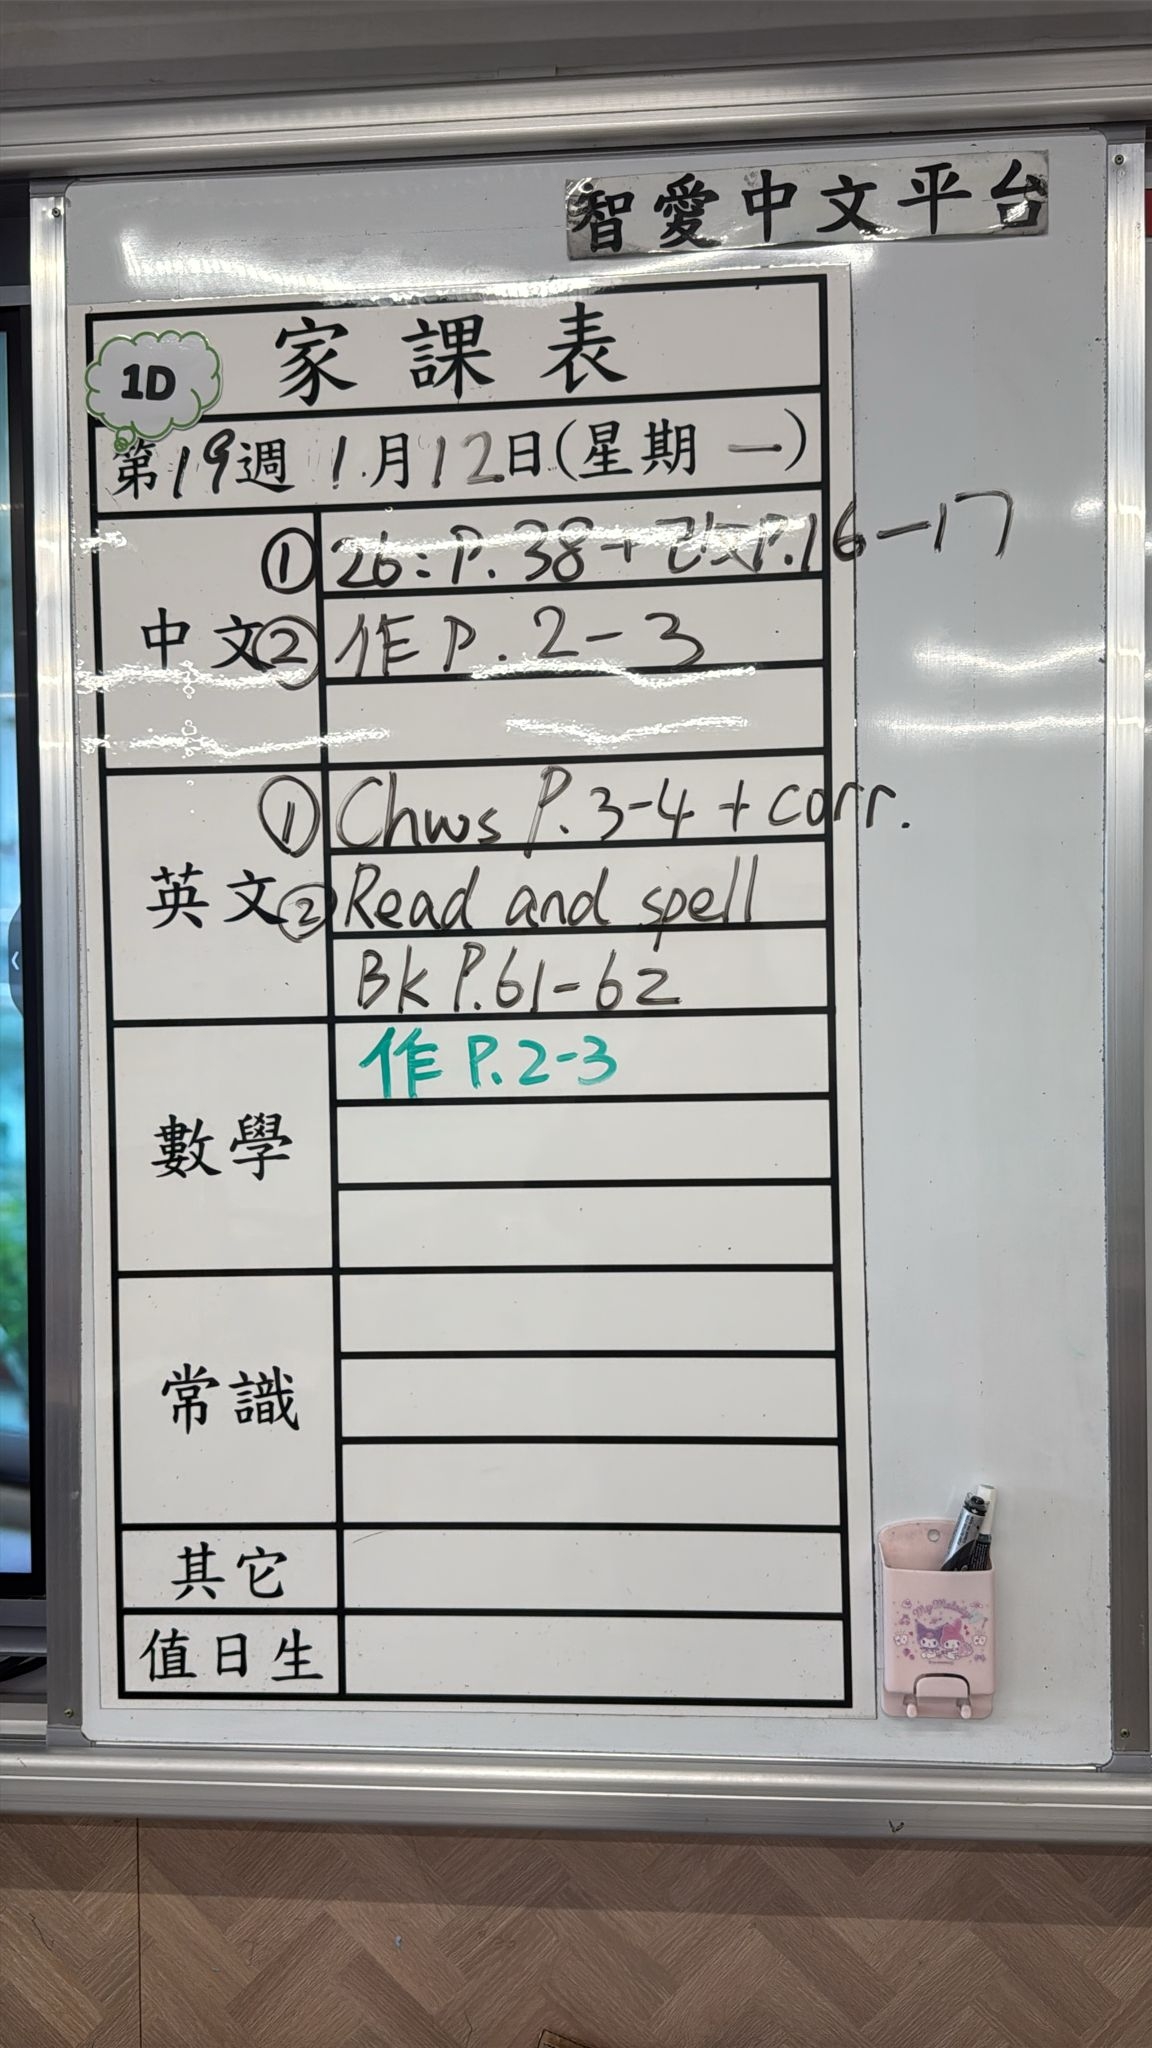 智愛中文平台
家課表
1D
第19週 1月12日(星期一)
中文
① 26: P.38 + 改P.16-17
② 作 P.2-3
英文
① Chws P.3-4 + corr.
② Read and spell
Bk P.61-62
數學
作 P.2-3
常識
其它
值日生
My Melody